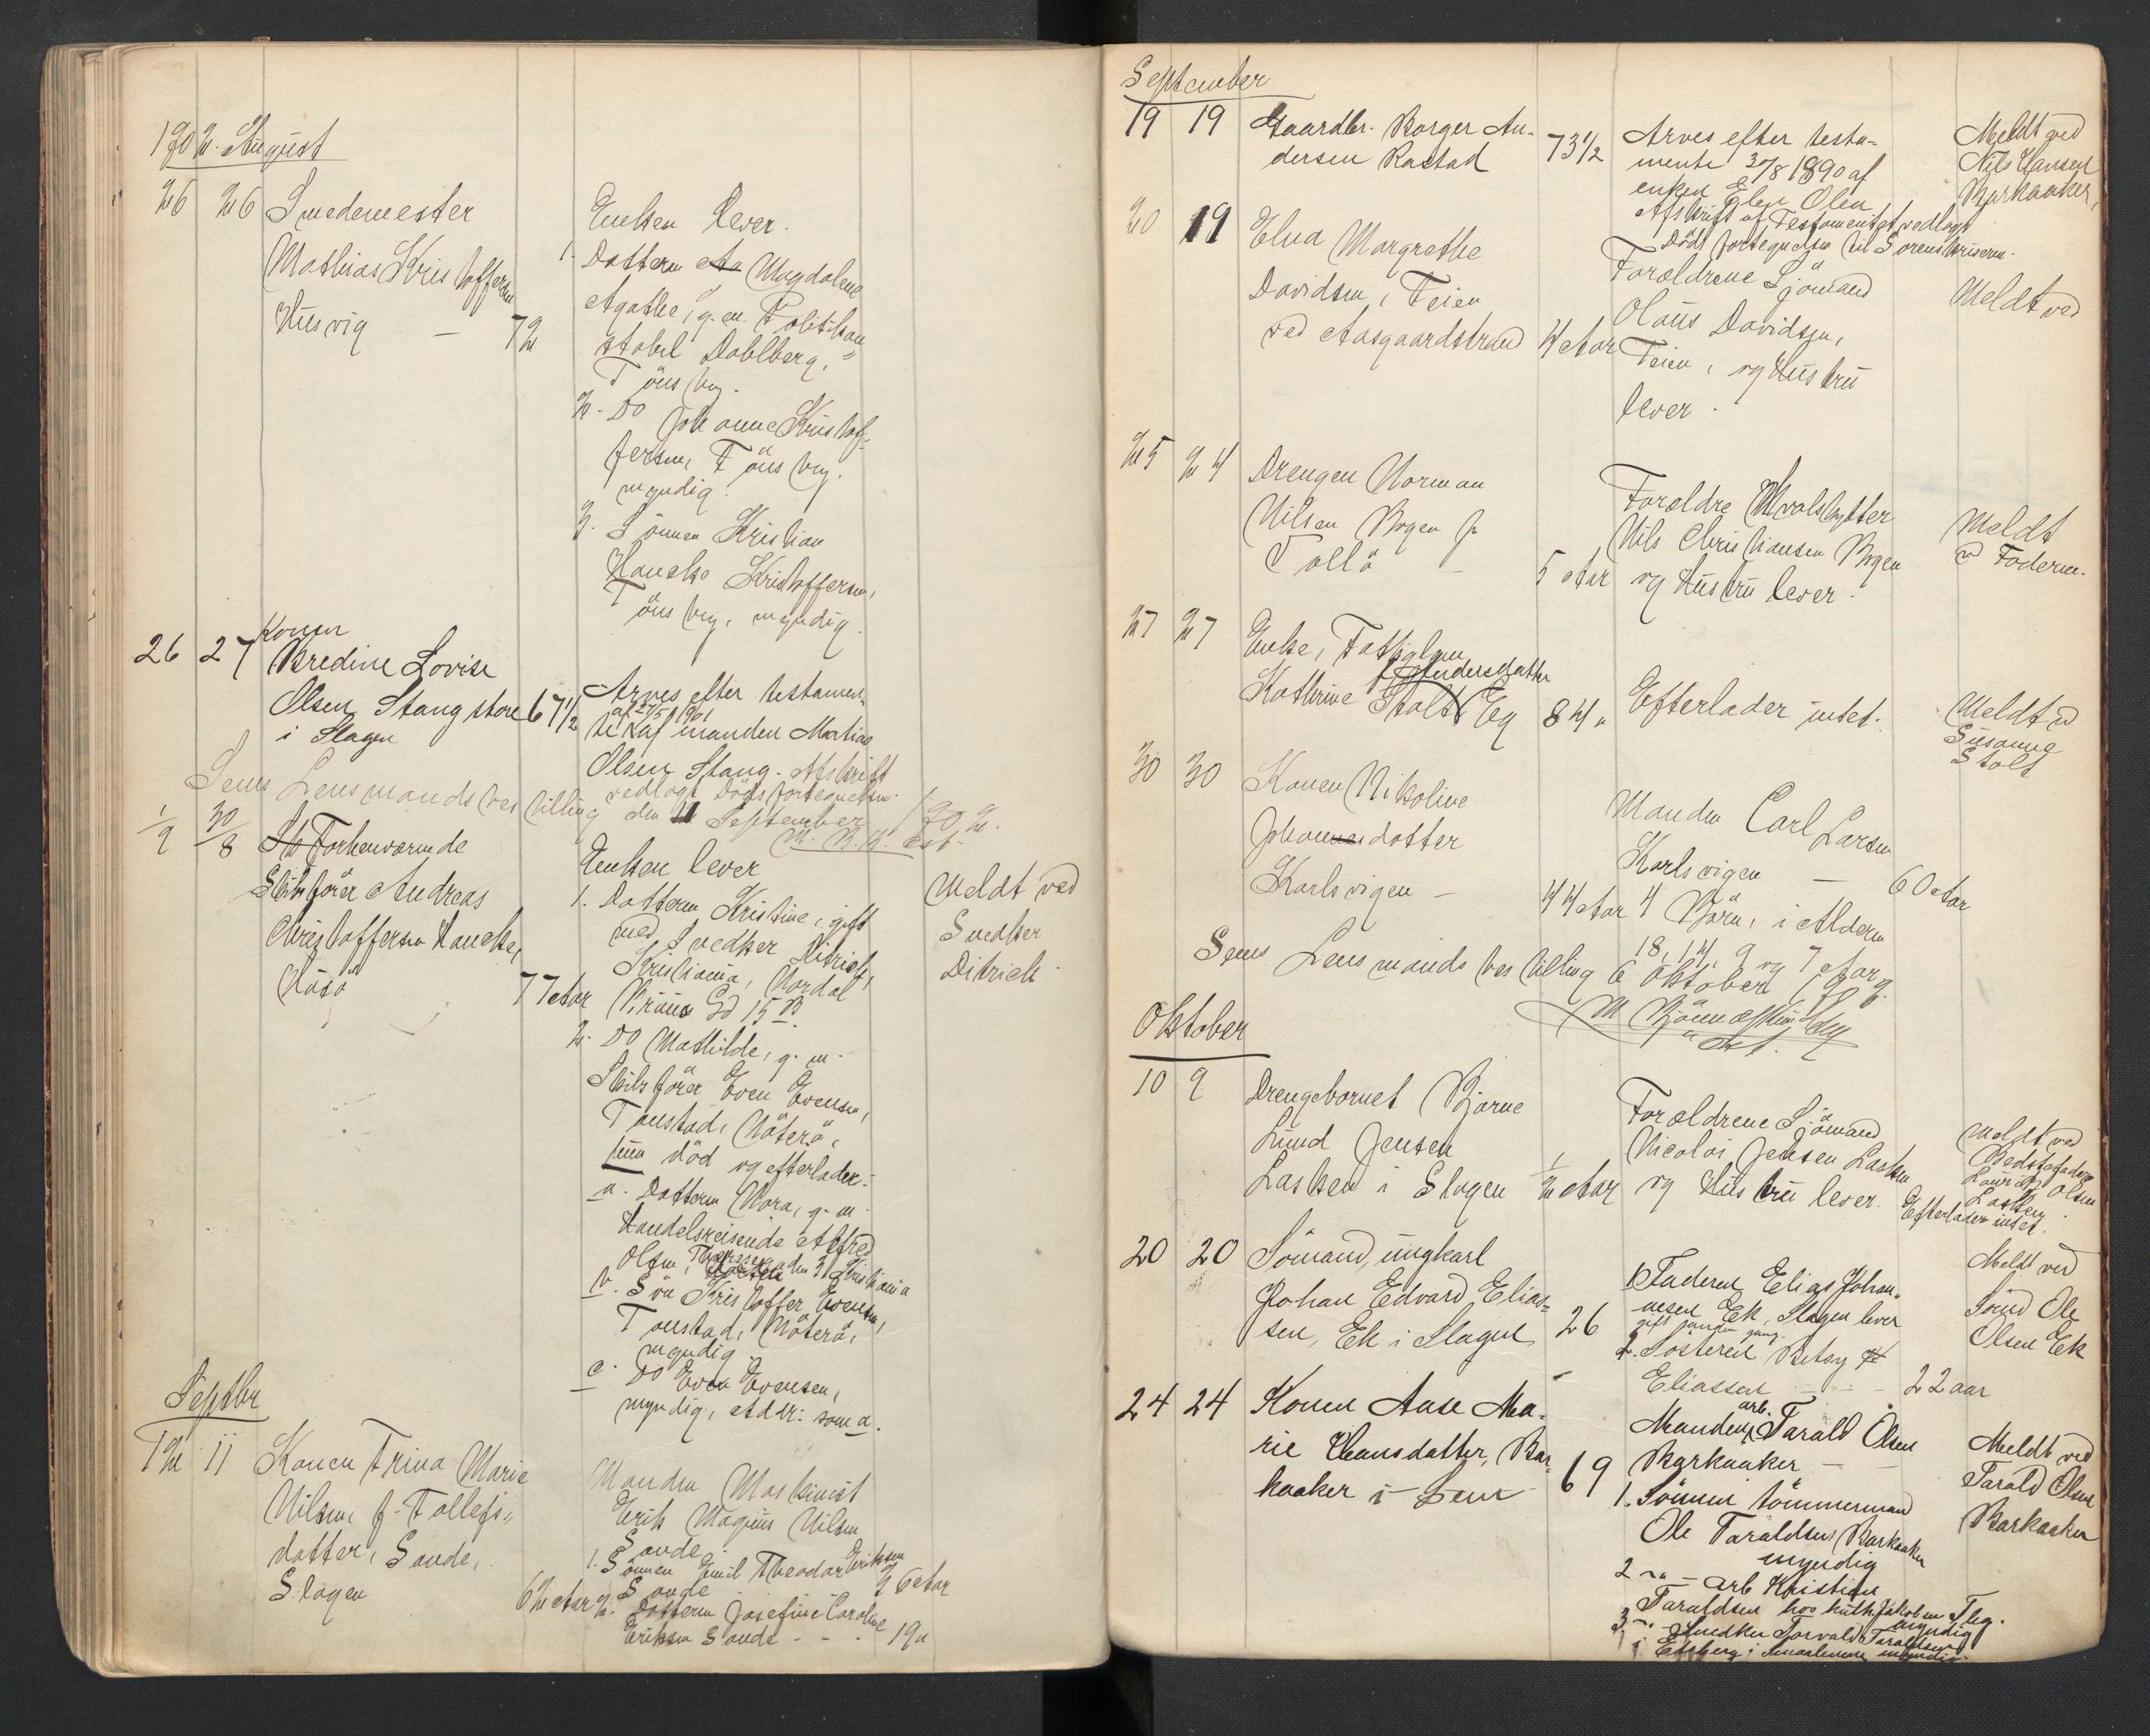 1902. August
26 26 Smedemester
Mathias Kristoffersen
Husvig — 72
Enken lever.
1. Datteren Aa Magdalene
Agathe, g. m. Politikon-
stabel Dahlberg,
Tönsbrg.
2. Do Johanne Kristof-
fersen, Tönsbrg.
myndig.
3. Sönnen Kristian
Hancke Kristoffersen,
Tönsbrg, myndig.
26 27 Konen
Bredine Lovise
Olsen Stang store 67 1/2
i Slagen
Arves efter testamen-
te af 27/5 1901
af manden Matias
Olsen Stang. Afskrift
vedlagt Dödsfortegnelsen.
Sems Lensmandsbestilling den 1 September 1902.
M. B. H. cst.
1/9 30/8 Sk Forhenværende
Skibsförer Andreas
Christoffersen Hancke,
Husö 77 Aar
Enken lever
1. Datteren Kristine, gift
med Snedker Ditrich,
Kristiania, Nordal
Bruns Gd 15 B.
2. Do Mathilde, g. m.
Skibsförer Even Evensen,
Tonstad, Nöterö,
hun död og efterlader:
a. Datteren Nora, g. m.
Handelsreisende Alfred
Olsen, Kristiania
b. Sön Kristoffer Evensen,
Tonstad, Nöterö,
myndig.
c. Do Even Evensen,
myndig, Addr: som a.
Meldt ved
Snedker
Ditrich.
Septbr
12 11 Konen Trina Marie
Nilsen f. Tollefs-
datter, Sande,
Slagen 62 Aar
Manden Maskinist
Erik Magnus Nilsen
Sande.
1. Sönnen Emil Theodor Eriksen
Sande 26 Aar
2. Datteren Josefine Caroline
Eriksen Sande - - - 19 "
September
19 19 Gaardbr. Borger An-
dersen Rastad 73 1/2
Arves efter testa-
mente 30/8 1890 af
enken Elen Olea
Afskrift af Testamentet vedlagt
Dödsfortegnelsen til Sorenskriveren.
Meldt ved
Nils Hansen
Barkaaker,
20 19 Elna Margrethe
Davidsen, Teien
ved Aasgaardstrand 4 Aar
Forældrene Sjömand
Olaus Davidsen,
Teien, og Hustru
lever.
Meldt ved
25 24 Drengen Norman
Nilsen Bogen p
Tollö — 5 Aar
Forældre Hvalskytter
Nils Christiansen Bogen
og Hustru lever.
Meldt
v Faderen.
27 27 Enke, Fattiglem
Kathrine Stolt f. Andersdatter Eg 84 "
Efterlader intet.
Meldt v
Susanne
Stolt
30 30 Konen Nikoline
Johannesdatter
Karlsvigen — 44 Aar
Manden Carl Larsen
Karlsvigen — 60 Aar
4 Börn, i Alderen
18, 14, 9 og 7 Aar
Sems Lensmandsbestilling 6 Oktober 1902.
cst.
Oktober
10 9 Drengebarnet Bjarne
Lund Jensen
Lasken i Slagen 1/2 Aar
Forældrene Sjömand
Nicolai Jensen Lasken
og Hustru lever.
Meldt ved
Bedstefaderen
Laurits Olsen
Lasken.
Efterlader intet.
20 20 Sömand, ungkarl
Johan Edvard Elias-
sen, Ek i Slagen 26
1. Faderen Elias Johan-
nesen Ek, Slagen lever
gift anden gang.
2. Söstren Betsy
Eliassen — — - 22 aar
Meldt ved
Svend Ole
Olsen Ek
24 24 Konen Aase Ma-
rie Hansdatter, Bar-
kaaker i Sem 69
Manden, arb. Tarald Olsen
Barkaaker — —
1. Sönnen tömmermand
Ole Taraldsen Barkaaker
myndig
2 - " - arb Kristian
Taraldsen hos kuth Jakobsen Tbg.
myndig
3 - " - Snedker Torvald Taraldsen
i Edsberg i Smaalenene myndig.
Meldt ved
Tarald Olsen
Barkaaker